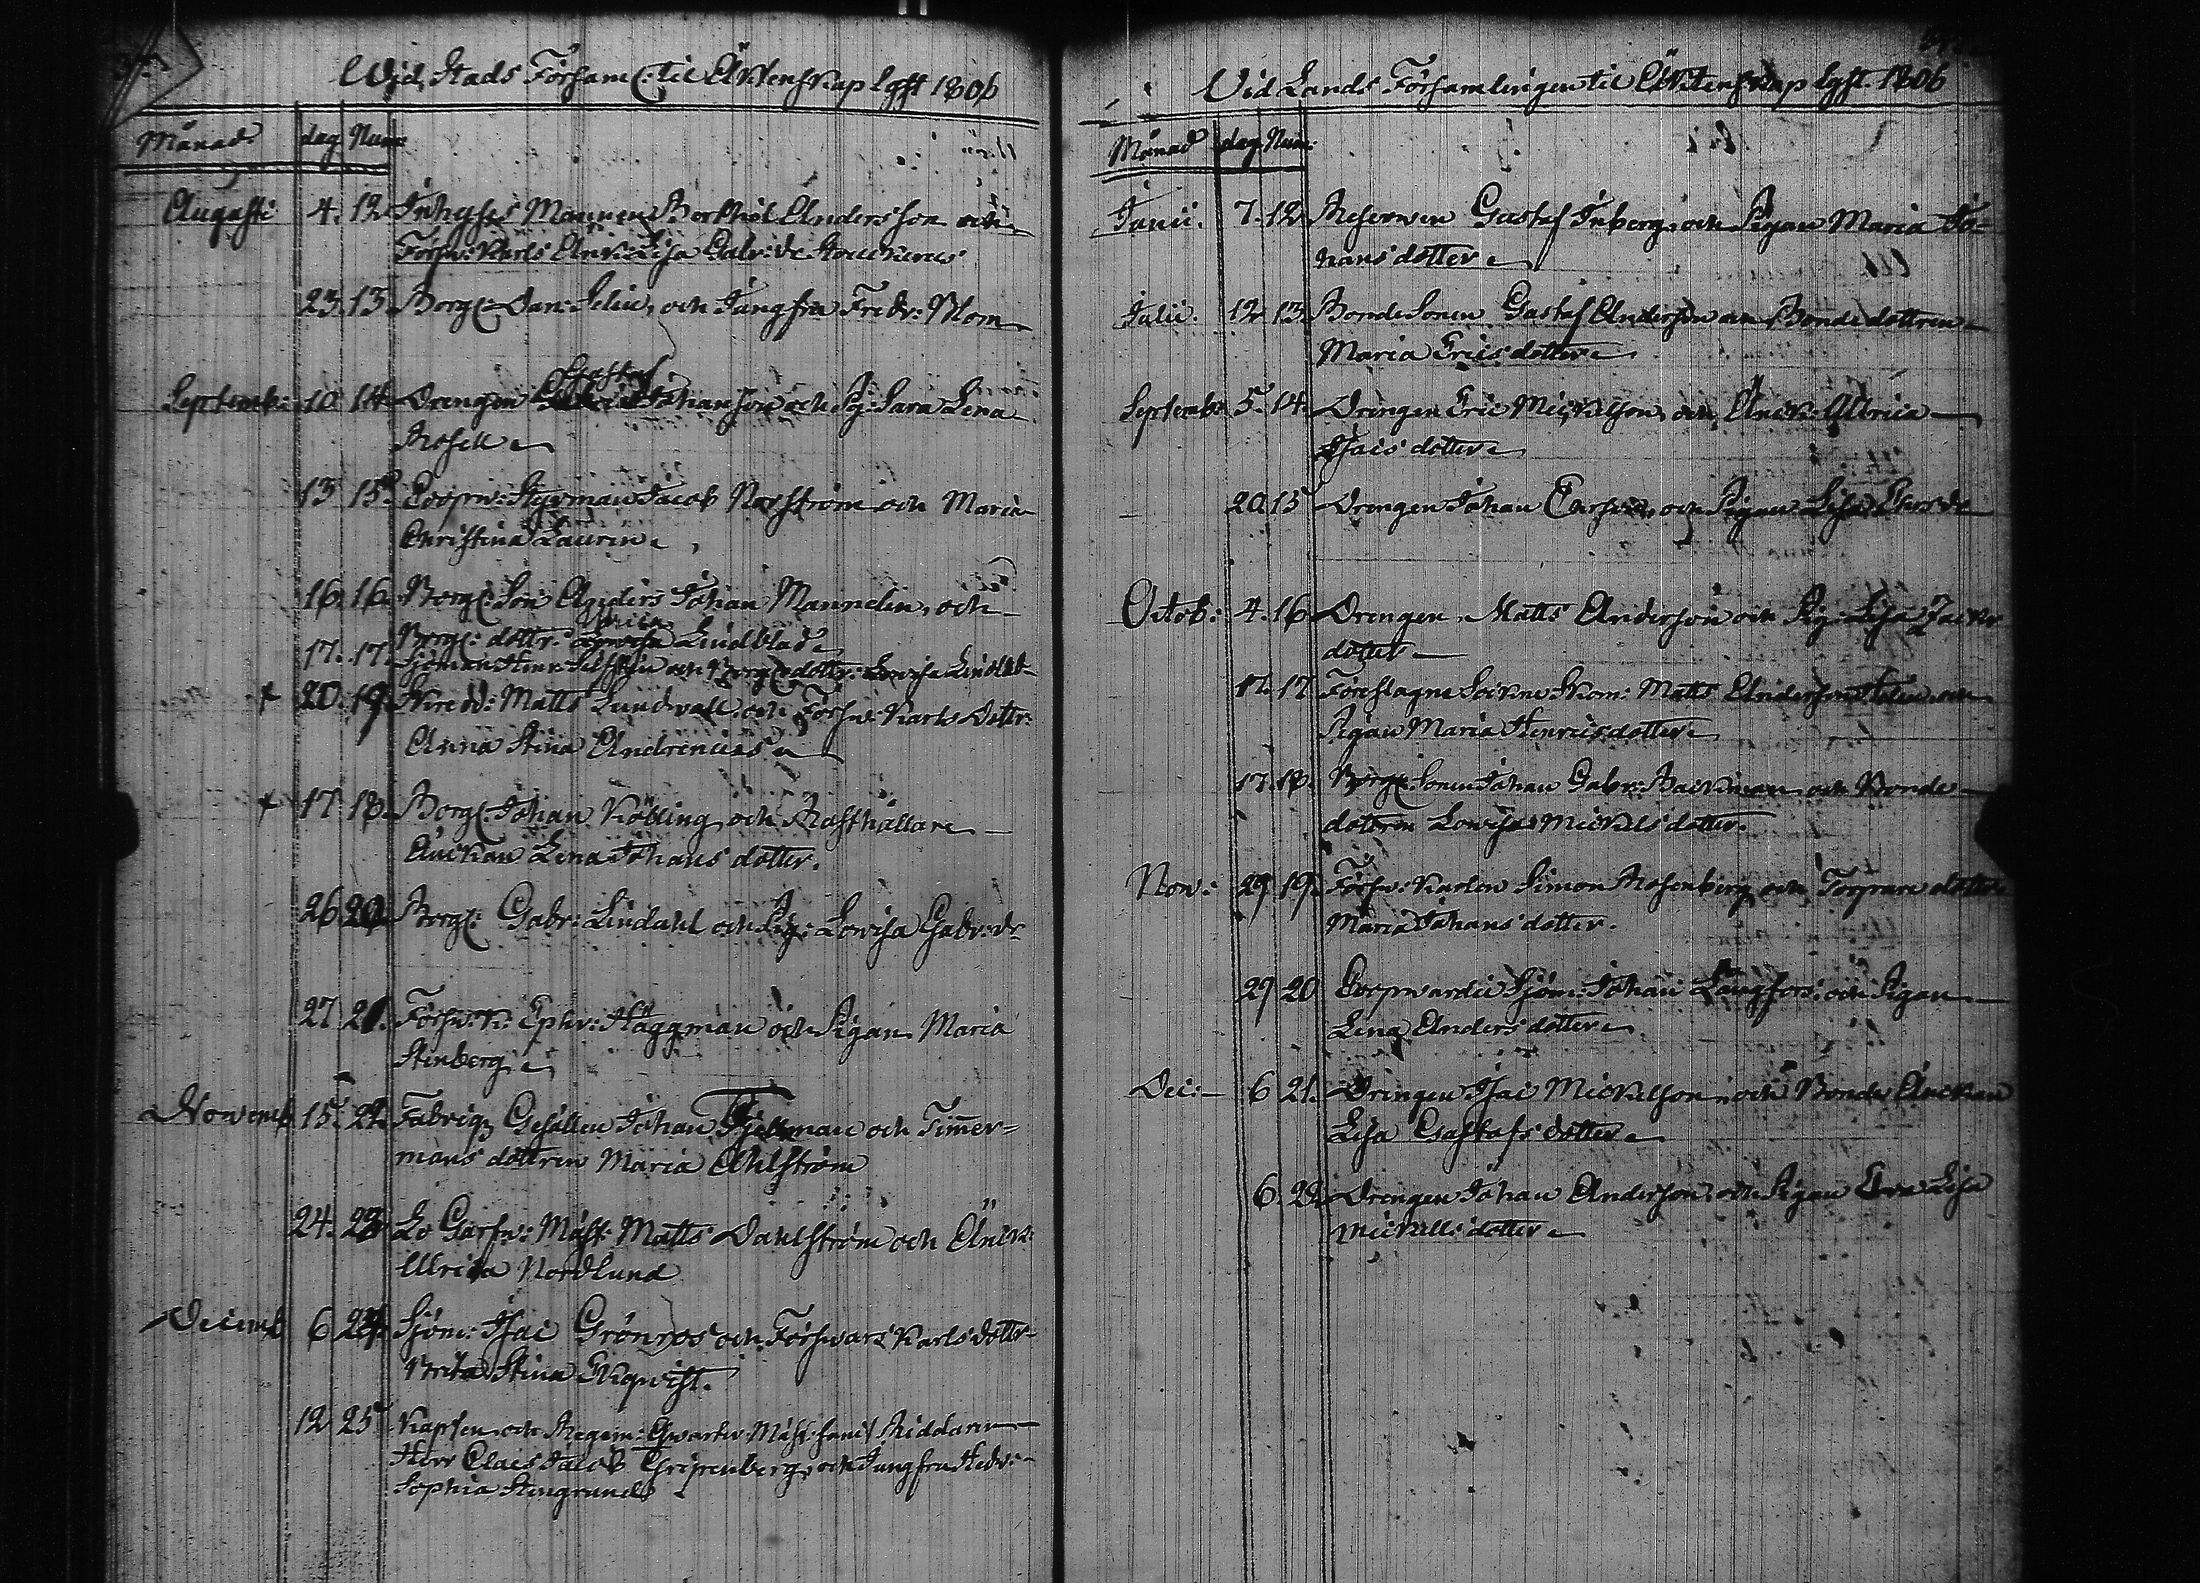 Wid Stads Församl: til Äktenskap lyst 1806
Månad dag Num:
Augusti 4. 12. Inhyses Mannen Berthil Andersson och
Förswr: Karls Enk: Lisa Gabr: dr
23. 13. Borg: Dan: Selin, och Jungfru Fredr: Blom
Septemb: 10 14. Drengen Gustaf Johansson och Pig: Sara Lena
Rosell
13 15. Coopw: Styrman Jacob Norström och Maria
Christina Laurin
16. 16. Borg: Son Anders Johan Mannelin, och
Borg: dottr: Ulrica Lindblad
17. 17. Sjöman Henr: och Borgare dottr: Lowisa Lindbl
+ 20. 19. Skredd: Matts Lundvall och Förswr Karls Dottr:
Anna Stina
+ 17 18. Borg: Johan Kölling och Rusthållare
Änckan Lena Johans dotter.
26 20. Borg: Gabr: Lindahl och Pig: Lowisa Gabr: dr
27 21. Förswr: K: Ephr: Häggman och Pigan Maria
Stenberg
Novemb 15. 22. Fabriqs Gesällen Johan Fjellman och Timmer=
mans dottren Maria Ahlström
24. 23 Lo Garfw: Mäst: Matts Dahlström och Änck:
Ulrica Nordlund
Decemb 6 24. Sjöm: Isac Grönroos och Förswars Karls dottr
Brita Stina Ekqwist.
12 25 Kapten och Regem: Qvarter Mäst: samt Riddaren
Herr Claes Jacob Gripenberg, och Jungfru Hedv:
Sophia Stengrund
Vid Lands Församlingen til Äktenskap lyst. 1806
Månad dag Num:
Junii. 7. 12 Reserven Gustaf Inberg och Pigan Maria Jo=
hans dotter
Julii. 12 13. Bonde Sonen Gustaf Anderson och Bonde dottren
Maria Erics dotter
Septemb: 5. 14. Drengen Eric Mickelson och Änck: Ulrica
Isacs dotter
20 15 Drengen Johan och Pigan Lisa
Octob: 4. 16 Drengen Matts Anderson och Pig: Lisa
dotter
11. 17 Föreslagne Sockne Skom: Matts Anderson och
Pigan Maria Henricsdotter
17. 18. Borg: Sonen Johan Gabr: Backman och Bonde
dottren Lowisa Mickels dotter.
Nov: 29 19. Förswr: Karlen Simon Rosenberg och Torpare dotter
Maria Johans dotter.
29 20 Coopwardie Sjöm: Johan Långfors och Pigan
Lena Anders dotter
Dec: 6 21. Drengen Isac Mickelson och Bonde Änckan
Lisa Gustafs dotter
6. 22. Drengen Johan Anderson och Pigan Eva Lisa
Mickels dotter